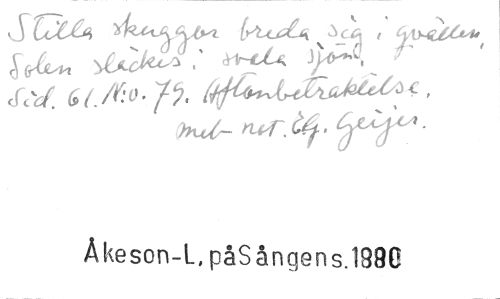 Stilla skuggor breda sig i qvällen,
Solen släckes i svala sjön.
Sid. 61. N:o. 79. Aftonbetraktelse.
mel- not. E.G. Geijer.
Åkeson-L, påSångens.1880